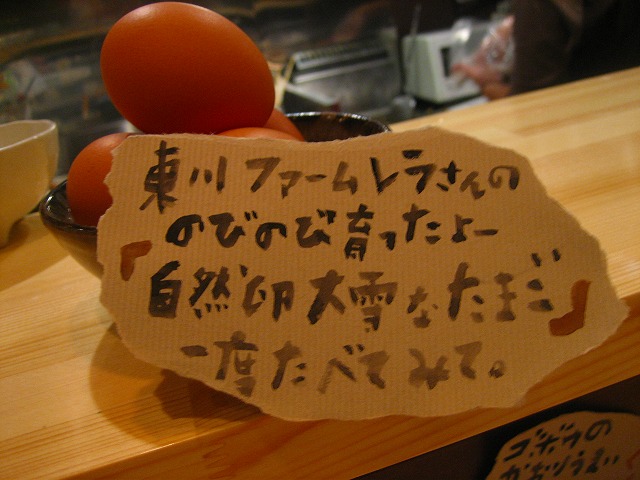 東川ファームレラさんの
のびのび育ったよー
「自然卵大雪なたまご」
一度たべてみて。
ゴボウの
かおりうまい